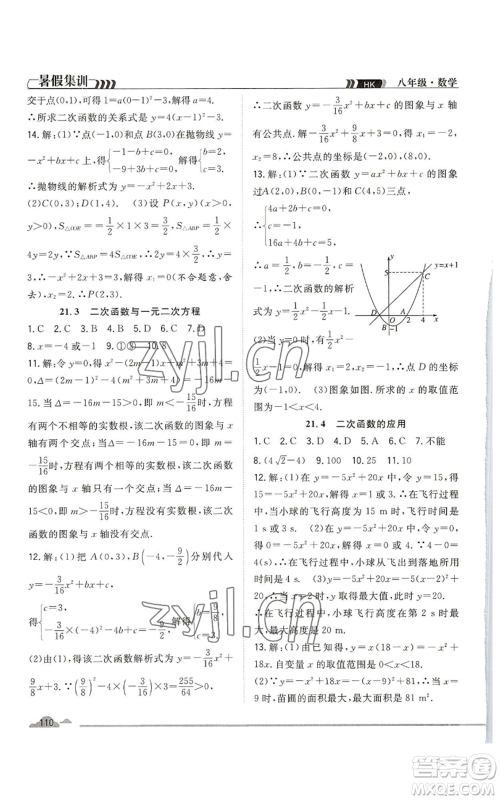 暑假集训
HK 八年级·数学
交于点(0,1),可得1=a(0-1)²-3,解得a=4.
∴所求二次函数的关系式是y=4(x-1)²-3.
14.解:(1)∵点A(-1,0)和点B(3,0)在抛物线y
=-x²+bx+c上,∴{-1-b+c=0, -9+3b+c=0,解得{b=2, c=3.
∴抛物线的解析式为y=-x²+2x+3.
(2)C(0,3);D(1,4). (3)设P(x,y)(x>0,
y>0),S△COE=1/2×1×3=3/2,S△ABP=1/2×
4y=2y.∵S△ABP=4S△COE,∴2y=4×3/2,∴y=
3,∴-x²+2x+3=3.解得x₁=0(不合题意,舍
去),x₂=2,∴P(2,3).
21.3 二次函数与一元二次方程
1.C 2.C 3.B 4.D 5.C 6.C 7.D
8.x=-4 9.①⑤ 10.8
11.解:令y=0,得0=(2m-1)x²+(m+1)x+
m-4,Δ=(m+1)²-4(2m-1)(m-4)
=-16m-15.当Δ=-16m-15>0,即m<
-15/16时,方程有两个不相等的实数根,该二次函
数的图象与x轴有两个交点.当Δ=-16m-15
=0,即m=-15/16时,方程有两个相等的实数根,
该二次函数的图象与x轴只有一个交点.当Δ
=-16m-15<0,即m>-15/16时,方程没有实数
根,该二次函数的图象与x轴没有交点.
12.解:(1)把A(0,3),B(-4,-9/2)分别代入
y=-3/16x²+bx+c,
得{c=3, -3/16×(-4)²-4b+c=-9/2,解得{b=9/8, c=3.
(2)由(1)可得,该二次函数解析式为y=-3/16x²+
9/8x+3.∵(9/8)²-4×(-3/16)×3=255/64>0,
∴二次函数y=-3/16x²+bx+c的图象与x轴
有公共点.∵-3/16x²+9/8x+3=0的解为x₁=-2,
x₂=8,∴公共点的坐标是(-2,0)或(8,0).
13.解:(1)∵二次函数y=ax²+bx+c的图象
过A(2,0),B(0,-1)和C(4,5)三点,
∴{4a+2b+c=0, c=-1, 16a+4b+c=5.
∴a=1/2,b=-1/2,c=-1.
∴二次函数的解析式
为y=1/2x²-1/2x-1.
(2)当y=0时,得
1/2x²-1/2x-1=0,解得x₁=2,x₂=-1,∴点D的坐
标为(-1,0). (3)图象如图.所求x的取值范
围为-1<x<4.
y
y=x+1
5
C
D
O
-1
A
4
x
B
21.4 二次函数的应用
1.C 2.A 3.D 4.A 5.D 6.C 7.不能
8.(4√2-4) 9.100 10.25 11.10
12.解:(1)在y=-5x²+20x中,令y=15,得
-5x²+20x=15,解得x₁=1,x₂=3,∴在飞行过程
中,当小球的飞行高度为15 m时,飞行时间是
1 s或3 s. (2)令y=0,得-5x²+20x=0,解
得x₁=0,x₂=4.∵4-0=4,∴在飞行过程中,小
球从飞出到落地所用时间是4 s. (3)y=-5x²
+20x=-5(x-2)²+20,∴当x=2时,y取得最
大值20,∴在飞行过程中,小球飞行高度在第2 s时
最大,最大高度是20 m.
13.解:(1)由已知,得y=x(36-2x)/2=-x²+18x,
自变量x的取值范围是0<x<18.
(2)∵y=-x²+18x=-(x-9)²+81,∴当x=
9时,苗圃的面积最大,最大面积是81 m².
110
zyjl.cn
zyjl.cn
答案圈
MXQE.COM